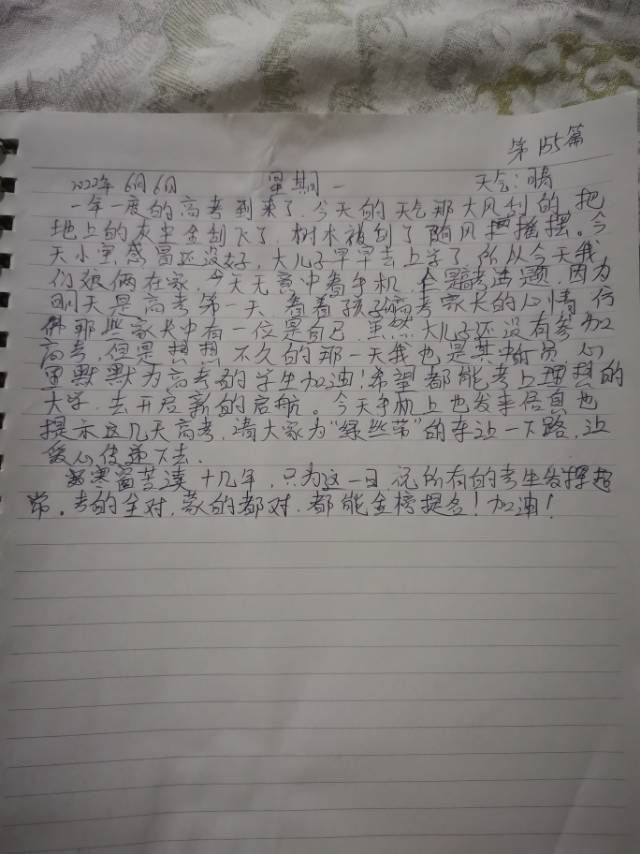 第155篇
2022年6月6日 星期一 天气:晴
一年一度的高考到来了,今天的天气那大风刮的,把
地上的灰尘全刮飞了,树木被刮了随风摇摆。今
天小宇感冒还没好,大儿子早早去上学了,所以今天我
们娘俩在家,今天无意中看手机,全是高考话题,因为
明天是高考第一天,看着孩子高考家长的心情,仿
佛那些家长中有一位是自己,虽然大儿子还没有参加
高考,但是想想不久的那一天我也是其中的一员,心
里默默为高考的学生加油!希望都能考上理想的
大学,去开启新的启航。今天手机上也发来信息也
提示这几天高考,请大家为“绿丝带”的车让一下路,让
爱心传递下去。
寒窗苦读十几年,只为这一日,祝所有的考生发挥超
常。考的全对,蒙的都对,都能金榜提名!加油!